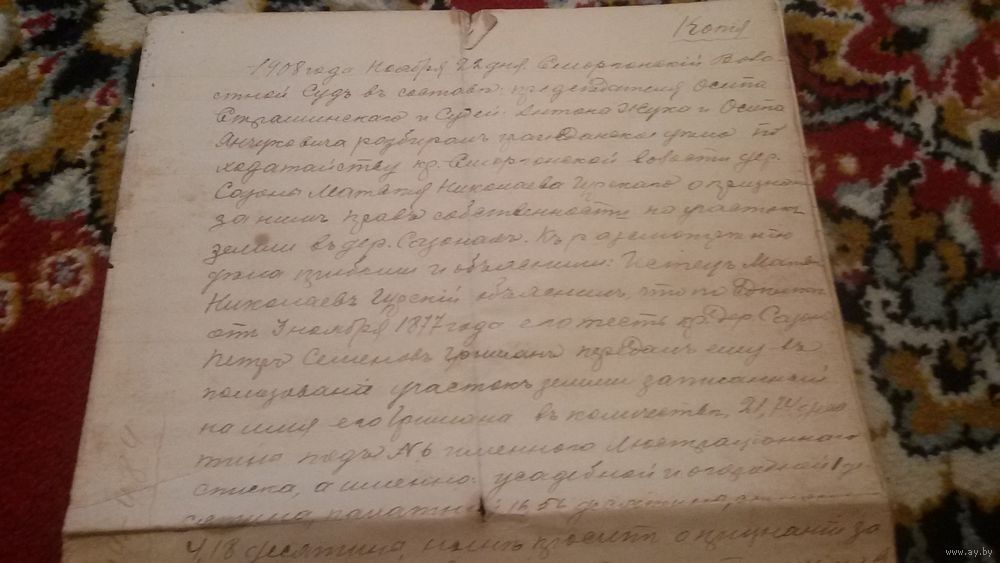 Копія
1908 года Ноября 22 дня Сморгонскій Воло-
стной Судъ въ составѣ: председателя Осипа
Страшинскаго и Судей: Антона Жука и Осипа
Янчуковича разбиралъ гражданское дѣло по
ходатайству кр. Сморгонской волости дер.
Сазоны Матвѣя Николаева Гурскаго о признан
за нимъ правъ собственности на участокъ
земли въ дер. Сазонахъ. Къ разсмотрѣнію
дѣла прибыли и объяснили: Истецъ Матв
Николаевъ Гурскій объяснилъ, что по
отъ 9 ноября 1877 года его тесть кр. дер. Сазоны
Петръ Семеновъ Гришанъ передалъ ему въ
пользованіе участокъ земли записанный
на имя его Гришана въ количествѣ 21,74 деся
тино подъ №6 именного Люстраціоннаго
списка, а именно: усадебной и огородной 1 де-
сятина, пахатной 16,56 десятино,
4,18 десятино, нынѣ проситъ о признаніи за
www.ay.by